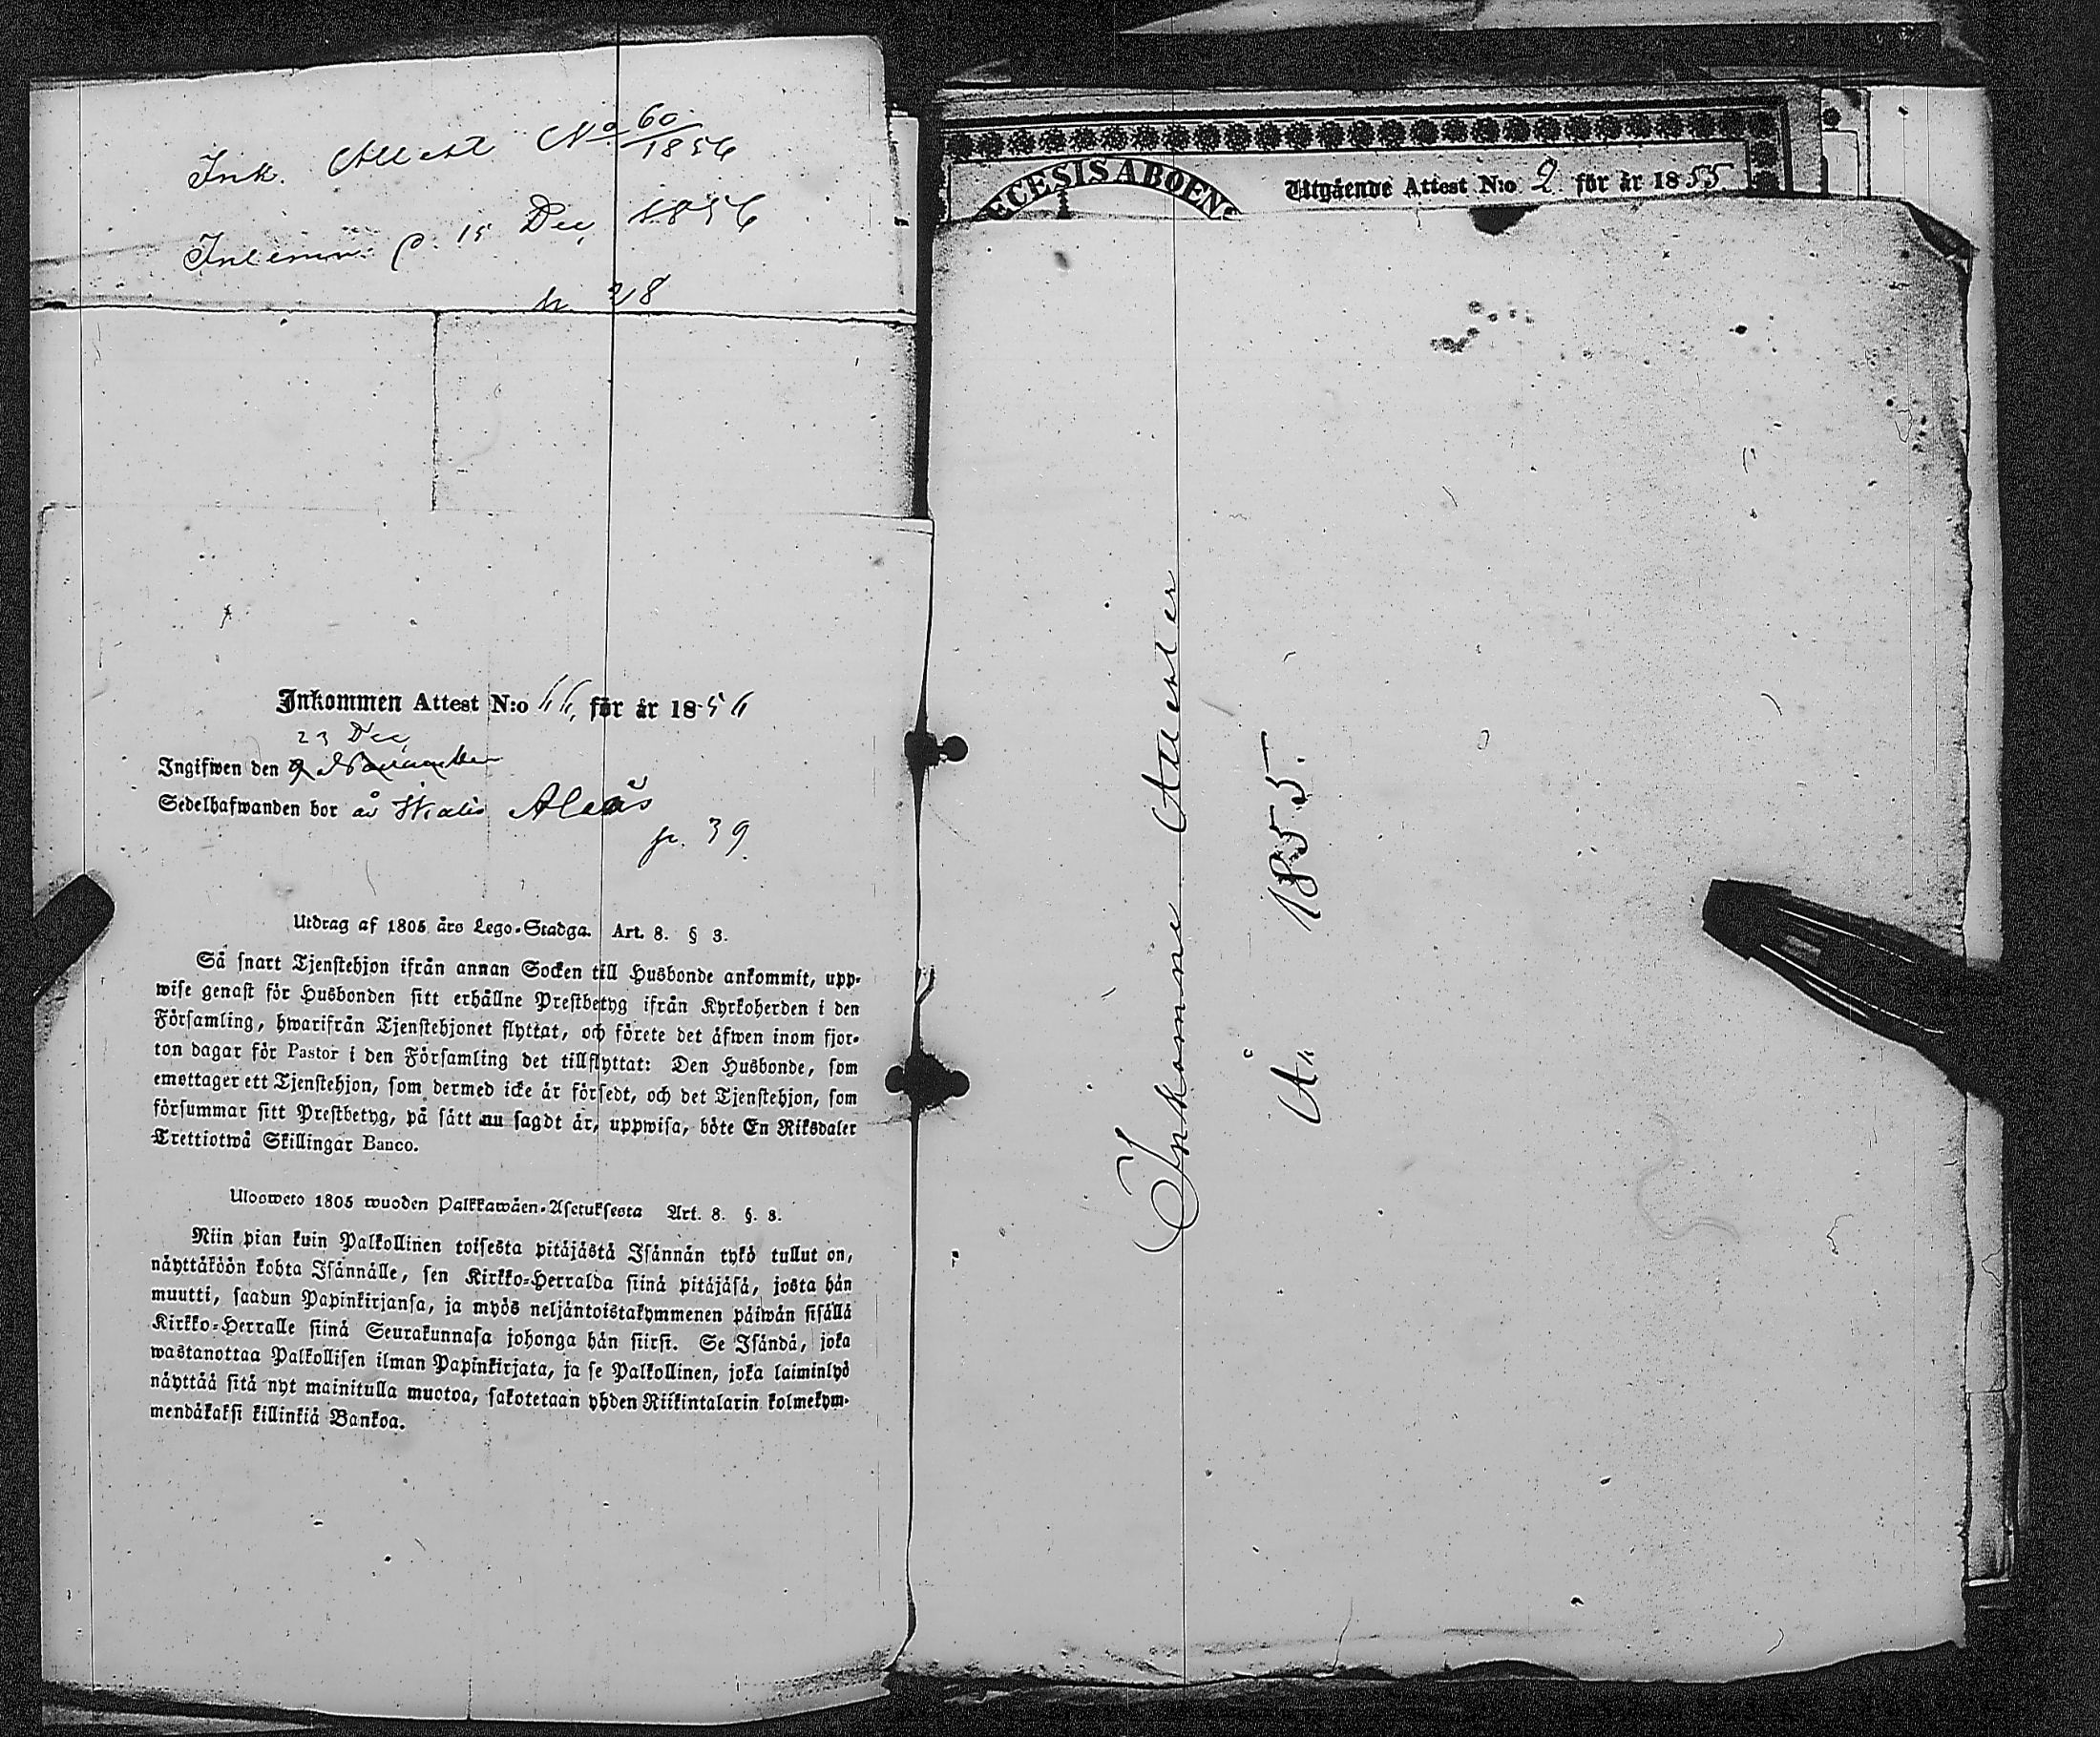 Ink. Attest No 60/1856
Inlemn. d. 15 Dec 1856
p. 28
Inkommen Attest N:o 66 för år 1856
23 Dec,
Ingifwen den 9 November
Sedelhafwanden bor å
p. 39.
Utdrag af 1805 års Lego-Stadga. Art. 8. § 3.
Så snart Tjenstehjon ifrån annan Socken till Husbonde ankommit, upp-
wise genast för Husbonden sitt erhållne Prestbetyg ifrån Kyrkoherden i den
Församling, hwarifrån Tjenstehjonet flyttat, och förete det äfwen inom fjor-
ton dagar för Pastor i den Församling det tillflyttat: Den Husbonde, som
emottager ett Tjenstehjon, som dermed icke är försedt, och det Tjenstehjon, som
försummar sitt Prestbetyg, på sätt nu sagdt är, uppwisa, böte En Riksdaler
Trettiotwå Skillingar Banco.
Ulosweto 1805 wuoden Palkkawäen-Asetuksesta Art. 8. §. 3.
Niin pian kuin Palkollinen toisesta pitäjästä Isännän tykö tullut on,
näyttäköön kohta Isännälle, sen Kirkko-Herralda siinä pitäjäsä, josta hän
muutti, saadun Papinkirjansa, ja myös neljäntoistakymmenen päiwän sisällä
Kirkko-Herralle siinä Seurakunnasa johonga hän siirsi. Se Isändä, joka
wastanottaa Palkollisen ilman Papinkirjata, ja se Palkollinen, joka laiminlyö
näyttää sitä nyt mainitulla muotoa, sakotetaan yhden Riikintalarin kolmekym-
mendäkaksi killinkiä Bankoa.
ECESIS ABOENS
Utgående Attest N:o 2 för år 1855
Inkomne Attester
År 1855.